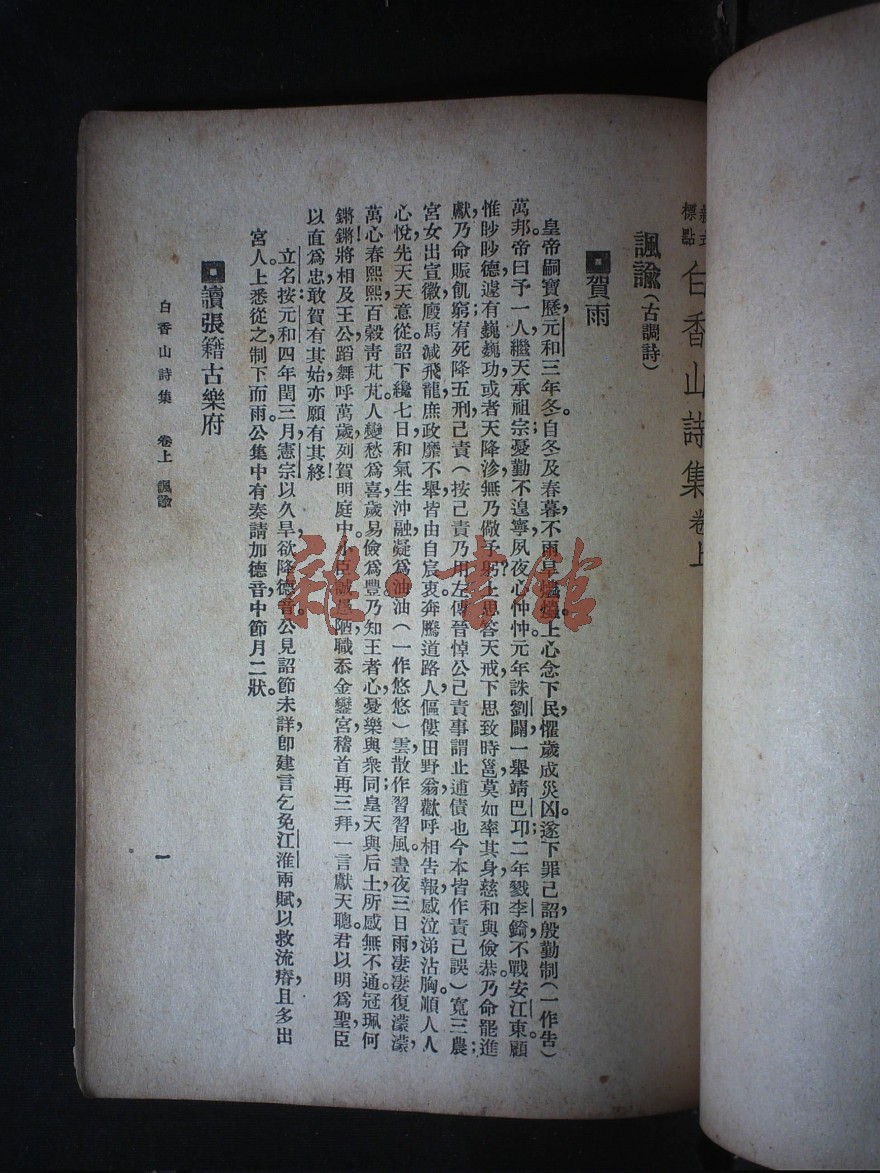 新式標點 白香山詩集 卷上
諷諭（古調詩）
賀雨
皇帝嗣寶歷，元和三年冬。自冬及春暮，不雨旱爞爞。上心念下民，懼歲成災凶。遂下罪己詔，殷勤制（一作告）
萬邦。帝曰予一人，繼天承祖宗。憂勤不遑寧，夙夜心忡忡。元年誅劉闢，一舉靖巴邛；二年戮李錡，不戰安江東。顧
惟眇眇德，遽有巍巍功。或者天降沴，無乃儆予躬？上思答天戒，下思致時邕。莫如率其身，慈和與儉恭。乃命罷進
獻，乃命賑飢窮。宥死降五刑，己責（按己責乃用左傳晉悼公己責事謂止逋債也今本皆作責己誤）寬三農；
宮女出宣徽，廏馬減飛龍。庶政靡不舉，皆由自宸衷。奔騰道路人，傴僂田野翁，歡呼相告報，感泣涕沾胸。順人人
心悅，先天天意從。詔下纔七日，和氣生沖融。凝爲油油（一作悠悠）雲，散作習習風。晝夜三日雨，凄凄復濛濛，
萬心春熙熙，百穀青芃芃。人變愁爲喜，歲易儉爲豐。乃知王者心，憂樂與衆同；皇天與后土，所感無不通。冠珮何
鏘鏘！將相及王公。蹈舞呼萬歲，列賀明庭中。小臣誠愚陋，職忝金鑾宮。稽首再三拜，一言獻天聰。君以明爲聖，臣
以直爲忠。敢賀有其始，亦願有其終！
立名按：元和四年閏三月，憲宗以久旱，欲降德音。公見詔節未詳，卽建言乞免江淮兩賦，以救流瘠，且多出
宮人。上悉從之。制下而雨。公集中有奏請加德音中節月二狀。
讀張籍古樂府
白香山詩集 卷上 諷諭
一
雜·書館